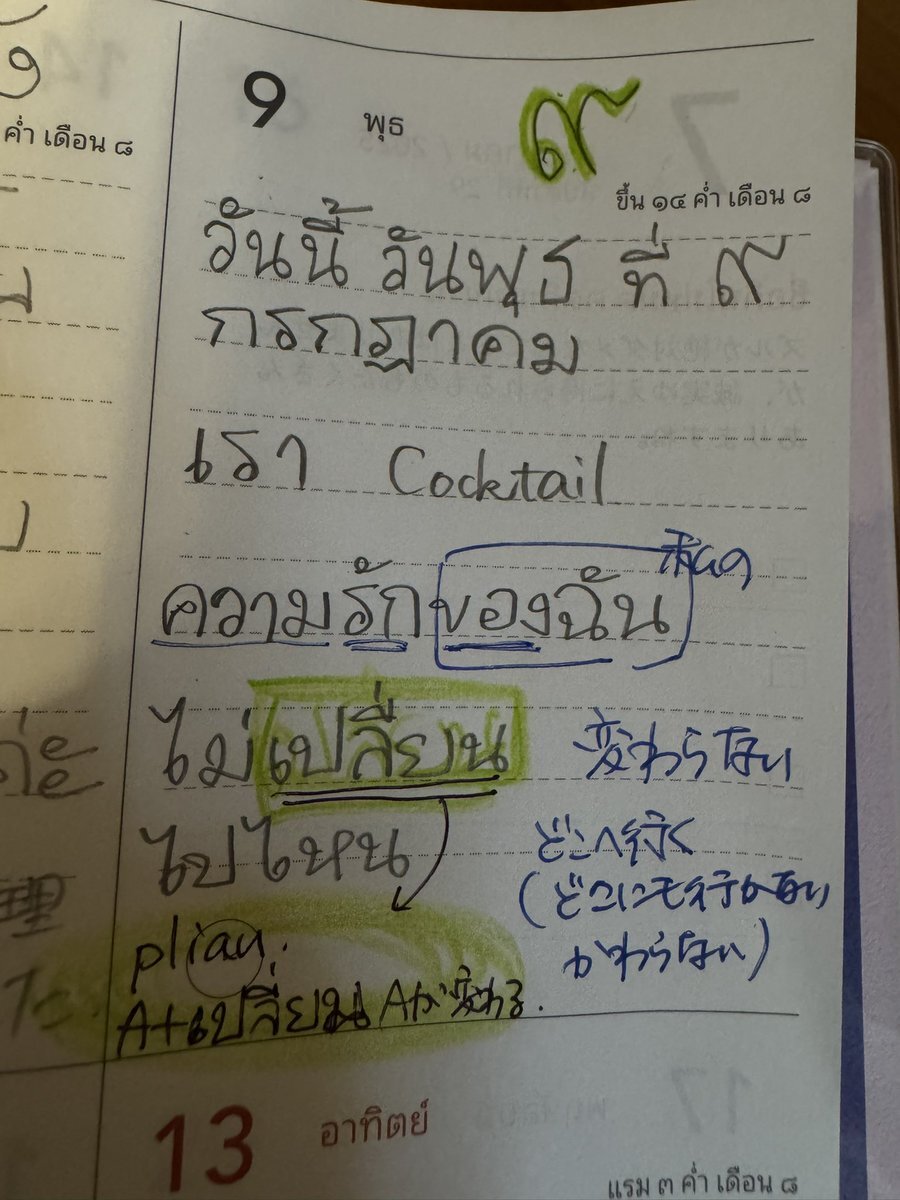 ค่ำ เดือน ๘
9 พุธ ๙
ขึ้น ๑๔ ค่ำ เดือน ๘
วันนี้ วันพุธ ที่ ๙
กรกฎาคม
เรา Cocktail
ความรักของฉัน
ไม่เปลี่ยน 変わらない
ไปไหน どこへ行く
(どこにも行かない
かわらない)
plian.
A+เปลี่ยน Aが変わる.
13 อาทิตย์
แรม ๓ ค่ำ เดือน ๘